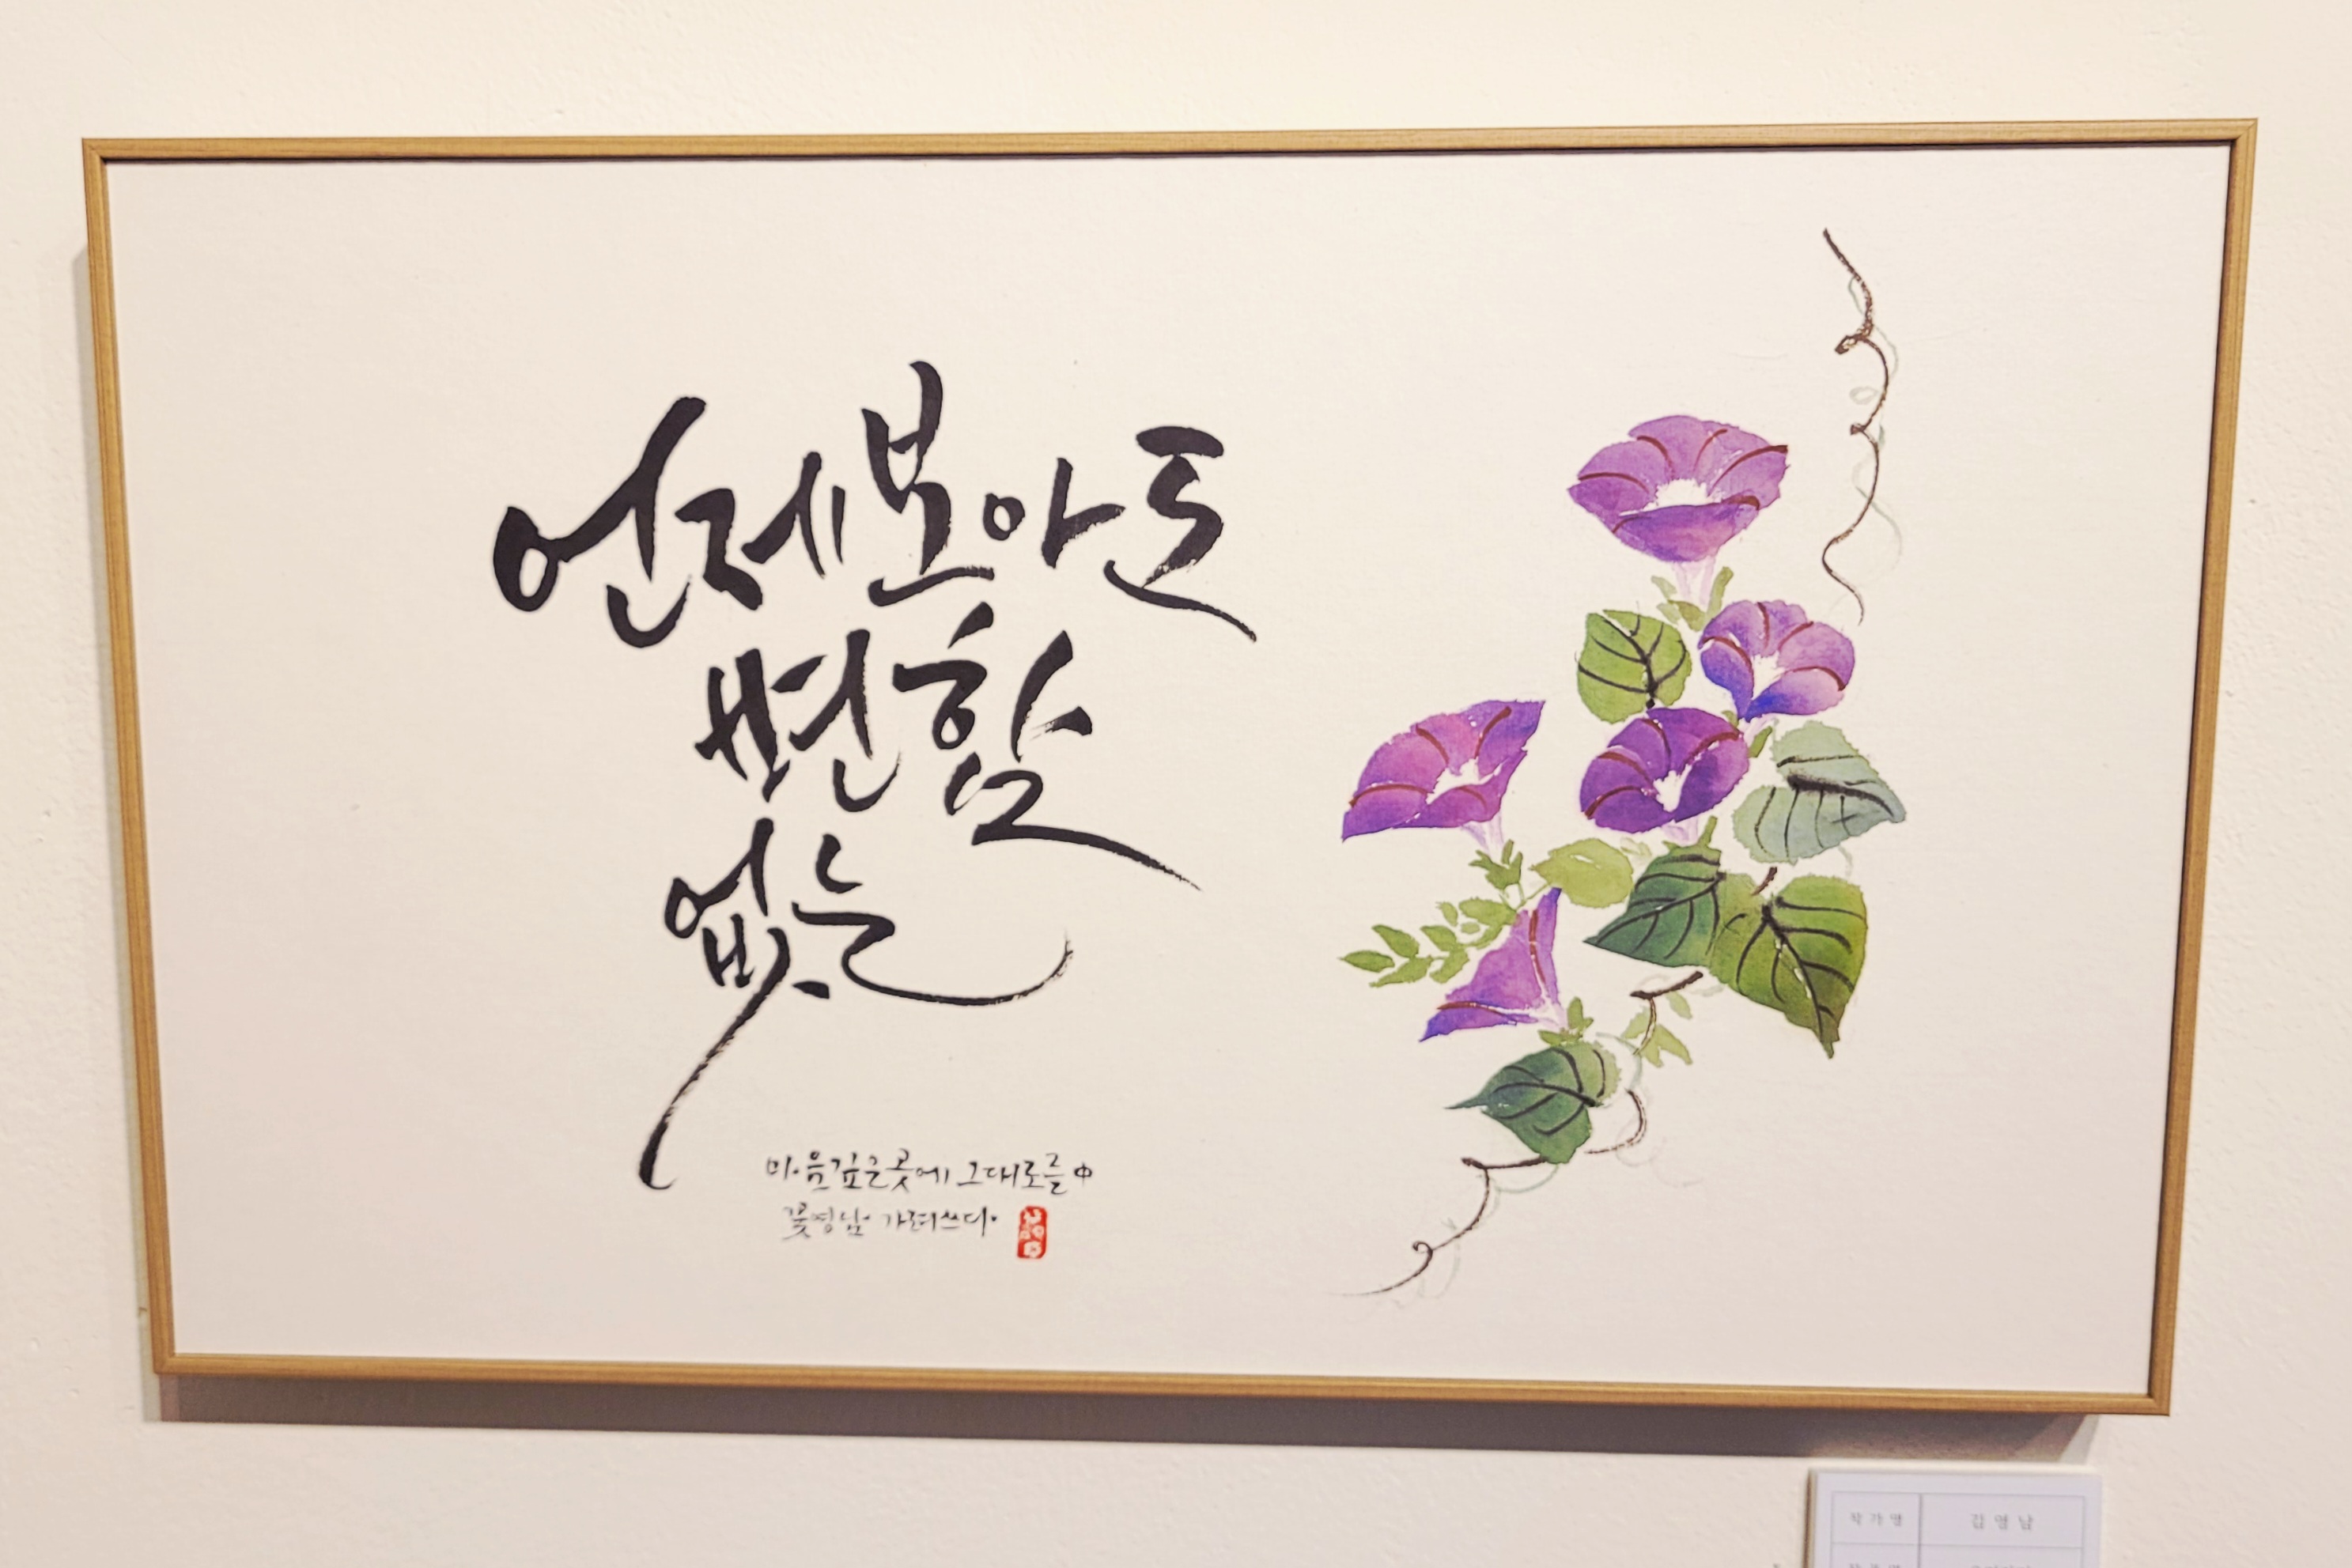 언제 보아도
변함
없는
마음 깊은 곳에 그대로를 中
꽃영남 가려쓰다.
작가명 김영남